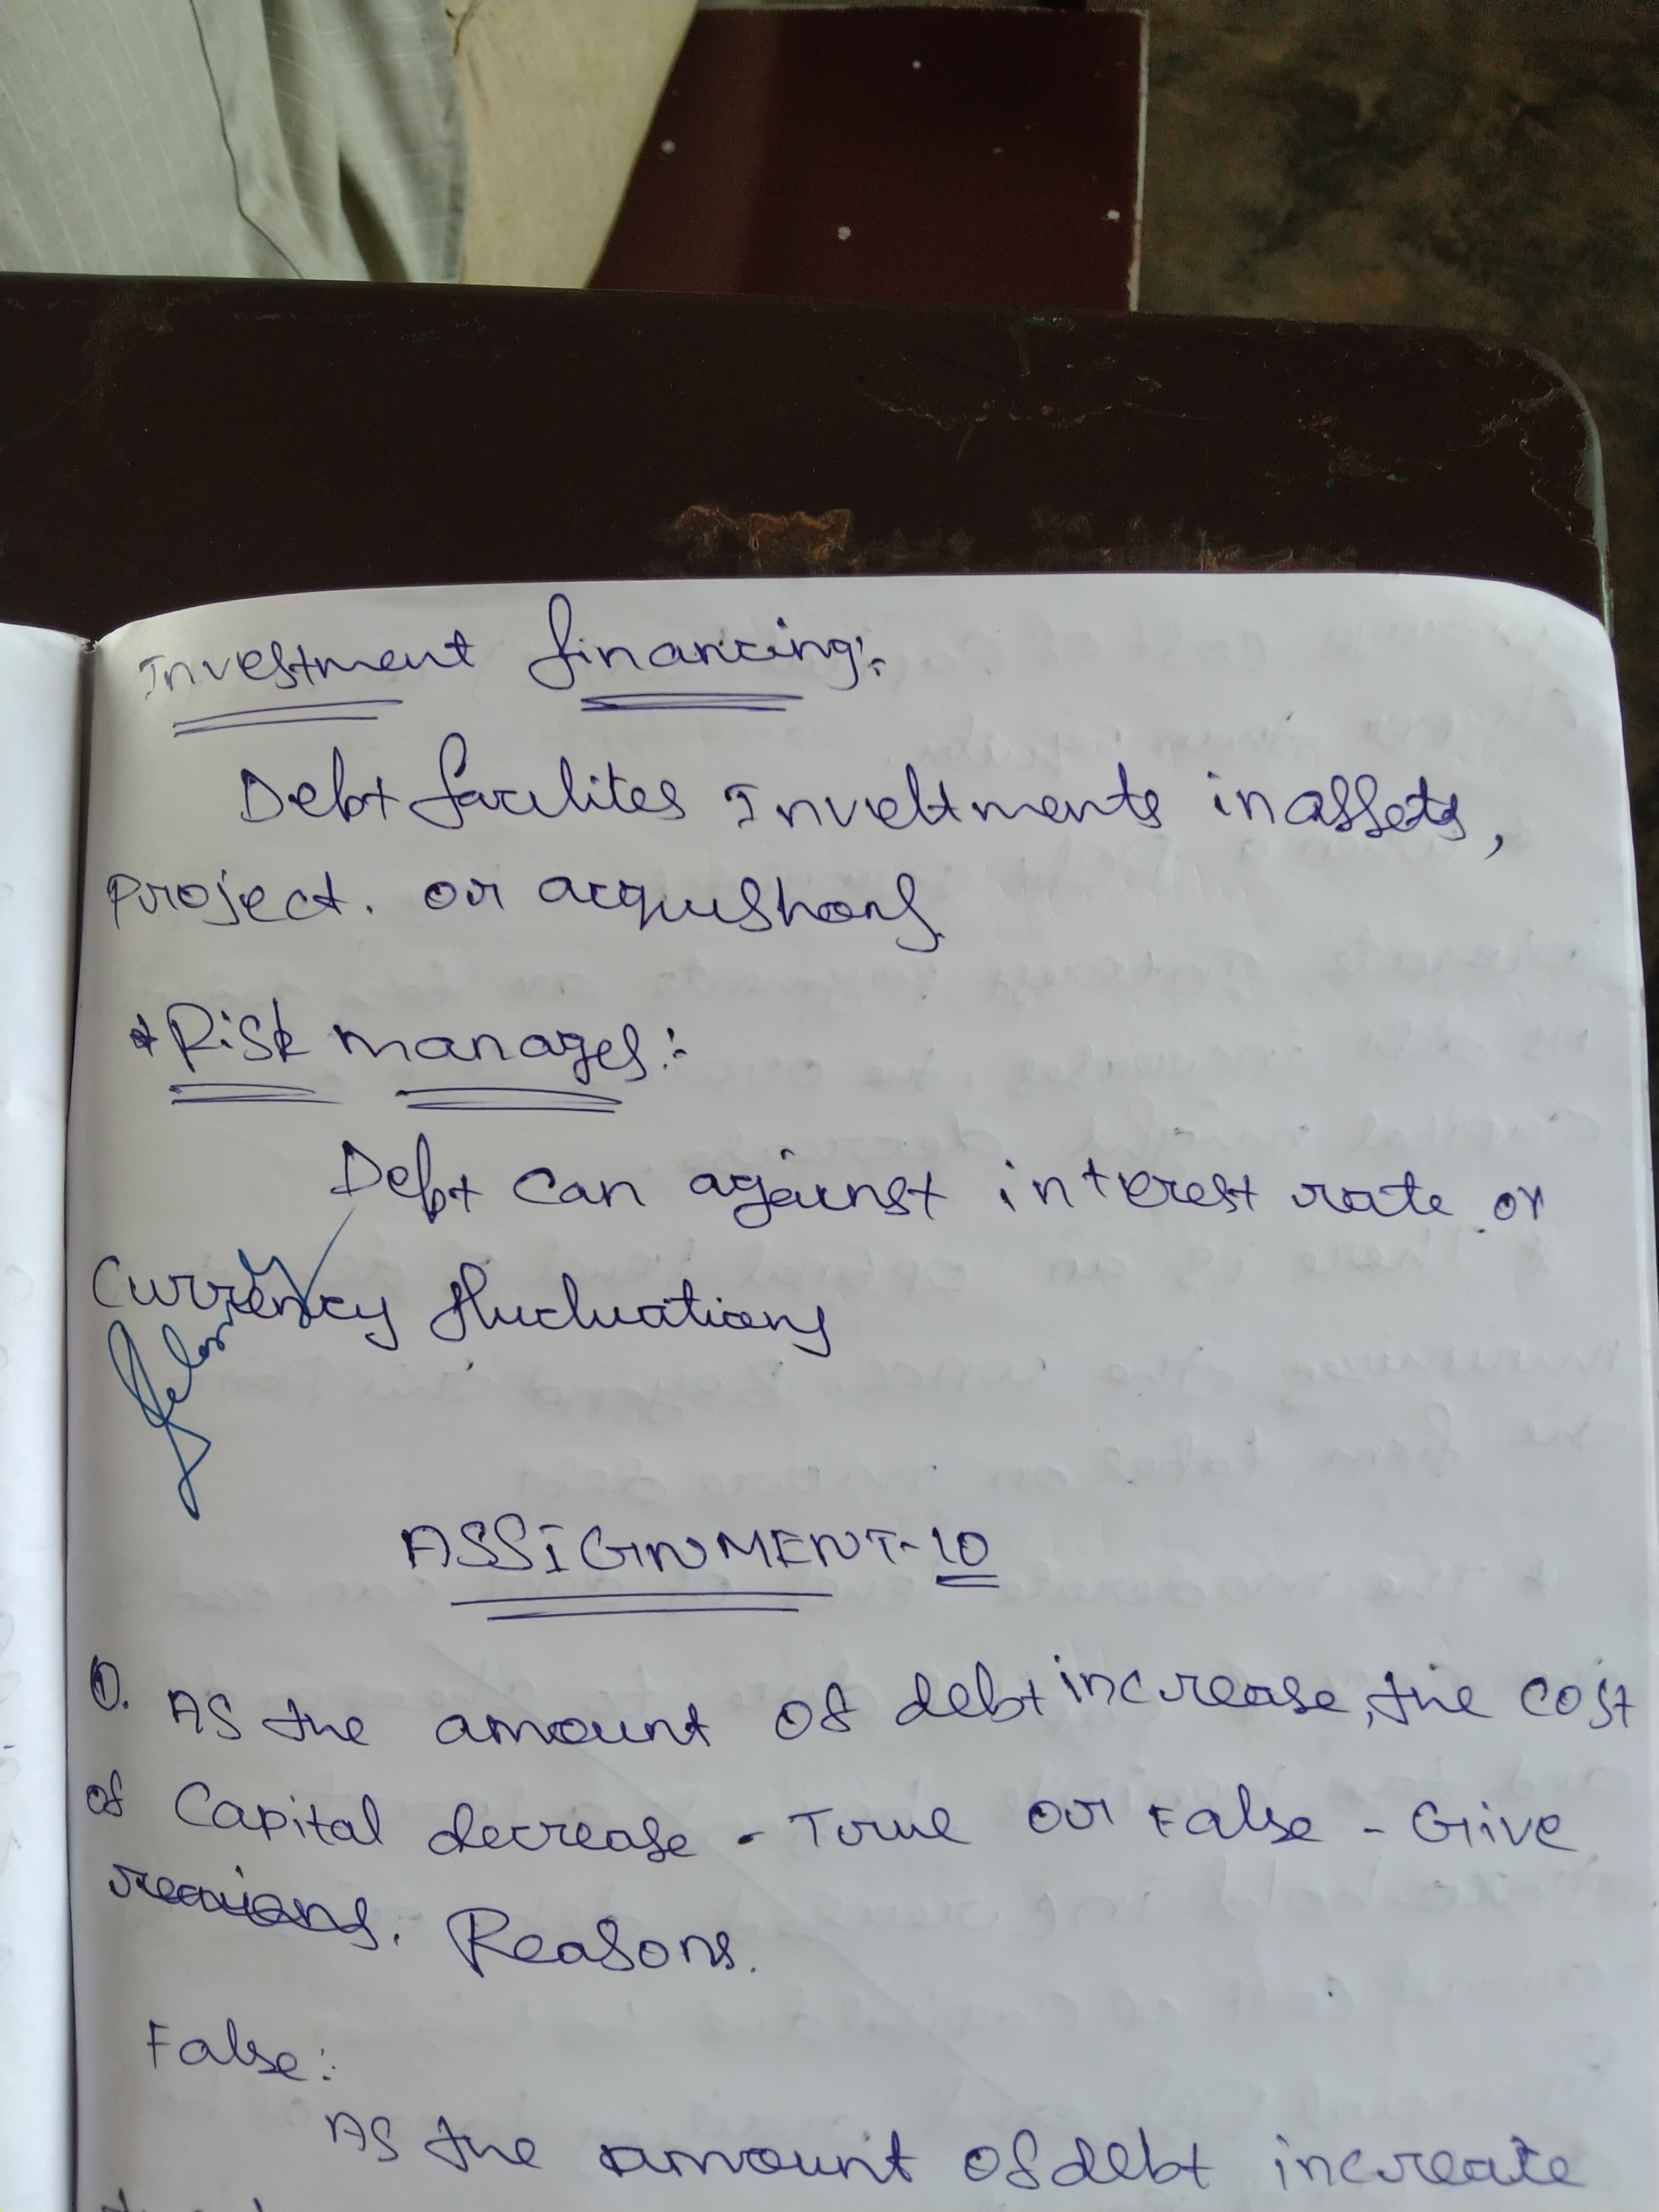 Investment financing:-
Debt facilites Investments in assets,
project. or acquistions
* Risk manages:-
Debt can against interest rate or
Currency fluctuations
ASSIGNMENT-10
1). As the amount of debt increase, the cost
of Capital decrease - True or False - Give
Reasons.
False:
As the amount of debt increate